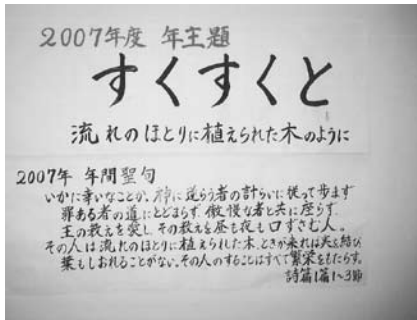 2007年度 年主題
すくすくと
流れのほとりに植えられた木のように
2007年 年間聖句
いかに幸いなことか、神に逆らう者の計らいに従って歩まず
罪ある者の道にとどまらず、傲慢な者と共に座らず
主の教えを愛し、その教えを昼も夜も口ずさむ人。
その人は流れのほとりに植えられた木。ときが来れば実を結び
葉もしおれることがない。その人のすることはすべて繁栄をもたらす。
詩篇1篇1~3節